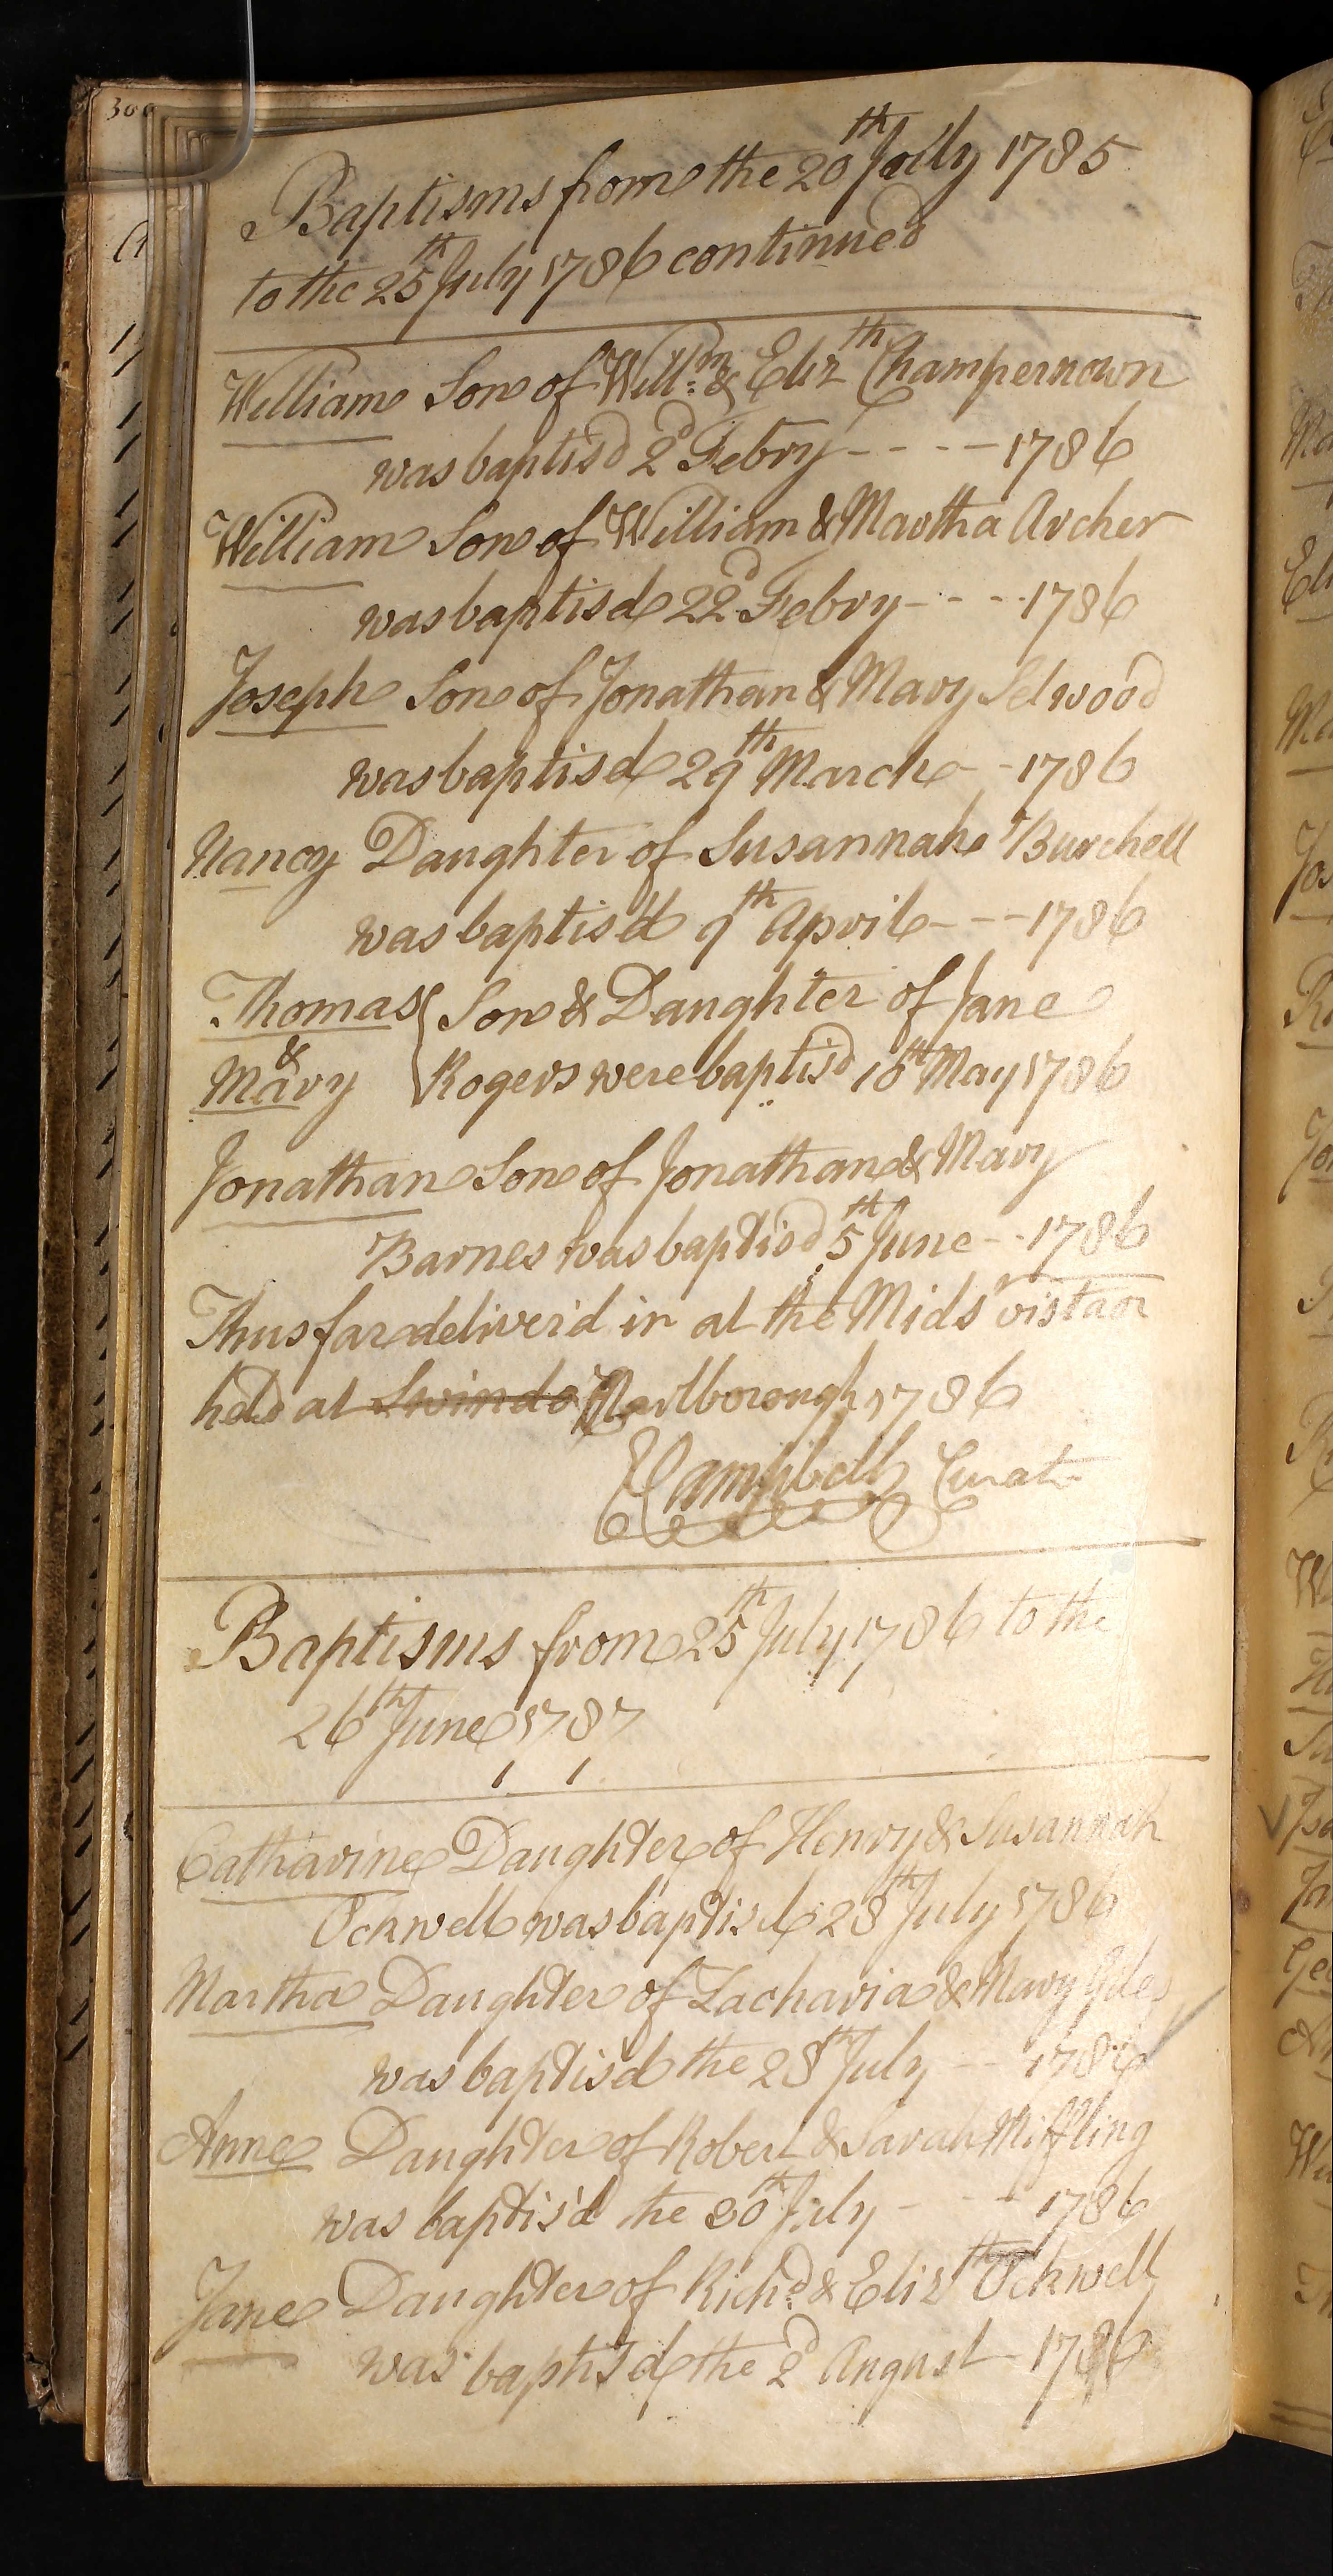 300
Baptisms from the 20th July 1785
to the 25th July 1786 continued
William Son of Willm. & Elizth Champernown
was baptisd 2d Febry - - - - 1786
William Son of William & Martha Archer
was baptisd 22d Febry - - - - 1786
Joseph Son of Jonathan & Mary Selwood
was baptisd 29th March - - 1786
Nancy Daughter of Susannah Burchell
was baptis'd 9th April - - - 1786
Thomas { Son & Daughter of Jane
&
Mary Rogers were baptisd 18th May 1786
Jonathan Son of Jonathan & Mary
Barnes was baptisd 5th June - - 1786
Thus far deliver'd in at the Mids'
held at Swindo Marlborough 1786
Campbell Curate
Baptisms from 25th July 1786 to the
26th June 1787
Catharine Daughter of Henry & Susannah
Ockwell was baptisd 28th July 1786
Martha Daughter of Zacharia & Mary Giles
was baptis'd the 28th July - - 1786
Anne Daughter of Robert & Sarah Miffling
was baptis'd the 30th July - - - 1786
Jane Daughter of Richd. & Elizth Ockwell
was baptisd the 2d August - 1786